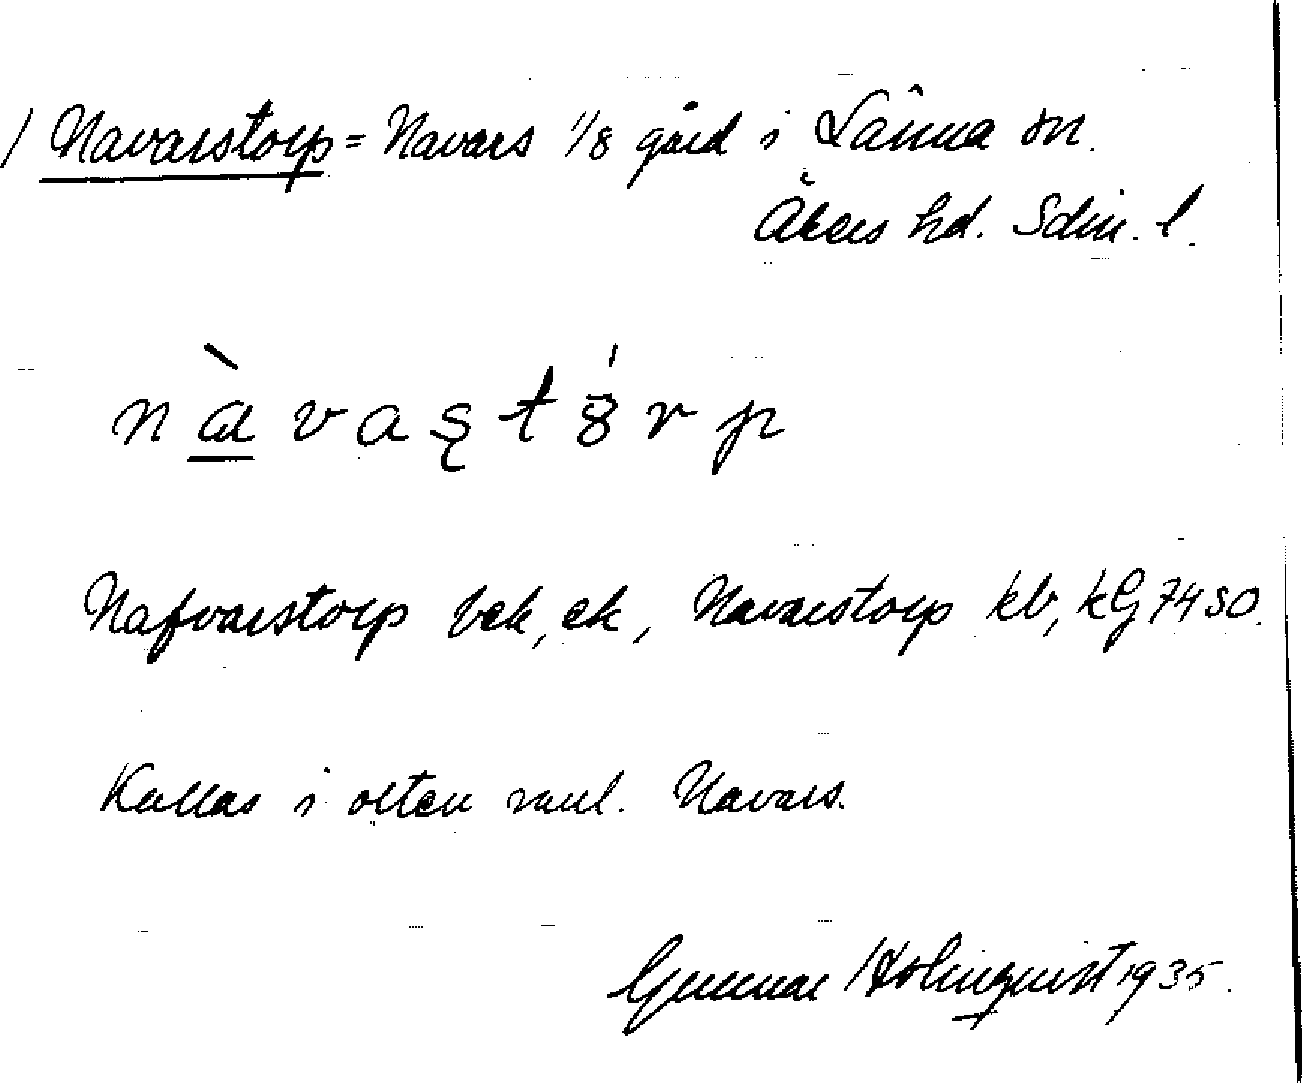 / Navarstorp = Navars 1/8 gård i Länna sn.
Åkers hd. Sdm. l.
nàvaştórp
Nafvarstorp bek, ek, Navarstorp kb, kG 74 SO.
Kallas i orten vanl. Navars.
Gunnar Holmquist 1935.